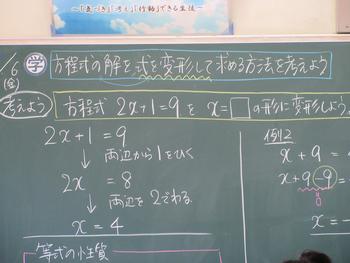 ～「気づき」「考え」「行動」できる生徒～
/6
(金)
学 方程式の解を式を変形して求める方法を考えよう
考えよう 方程式 2x+1=9 を x=□ の形に変形しよう。
2x+1=9
↓ 両辺から1をひく
2x = 8
↓ 両辺を2でわる
x = 4
等式の性質
例2
x+9=
x+9-9=
0
x=-